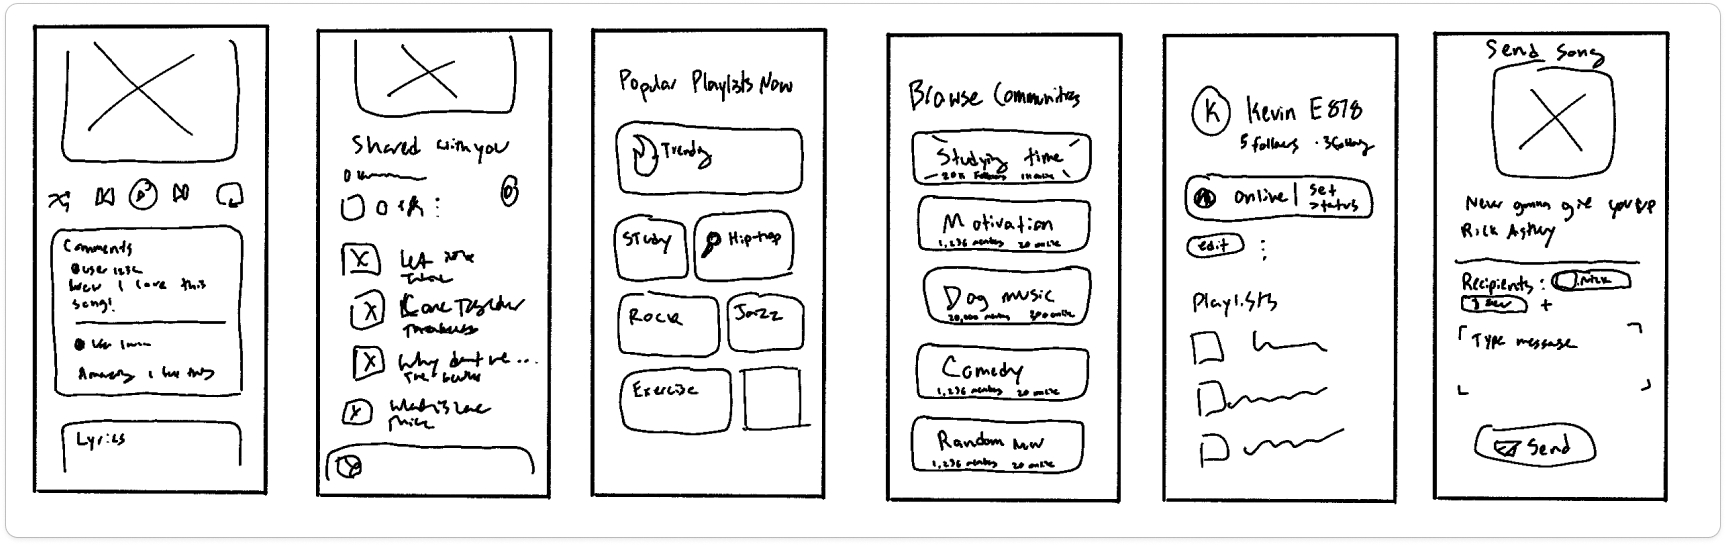 Comments
user 123c
Wow I love this
song!
User
Amazing I love this
Lyrics
Shared with you
Let
Come Together
Why don't we ...
The
What is love
Popular Playlists Now
Trending
Study
Hip-hop
Rock
Jazz
Exercise
Browse Communities
Studying time
20k followers 1k online
Motivation
1,236 members 20 online
Dog music
20,000 members 300 online
Comedy
1,236 members 20 online
Random
1,236 members 20 online
K
Kevin E878
5 followers · 3 following
online | set
status
edit
Playlists
Send Song
Never gonna give you up
Rick Astley
Recipients: Nick
+
Type message
Send